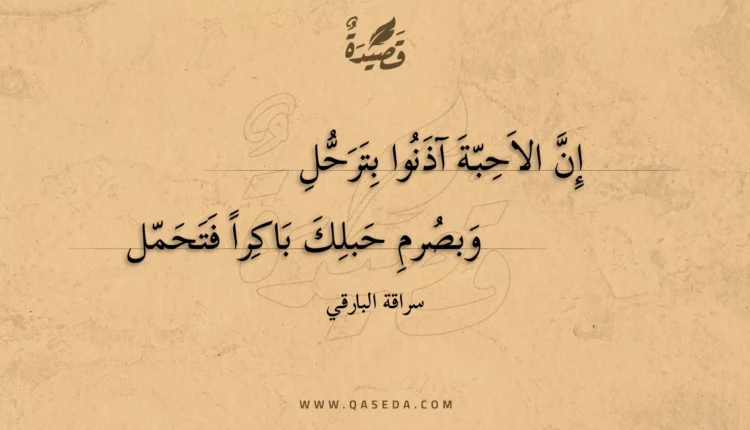 قَصِيدَةٌ
إِنَّ الاَحِبّةَ آذَنُوا بِتَرَحُّلِ
وَبصُرمِ حَبلِكَ بَاكِراً فَتَحَمّل
سراقة البارقي
WWW.QASEDA.COM